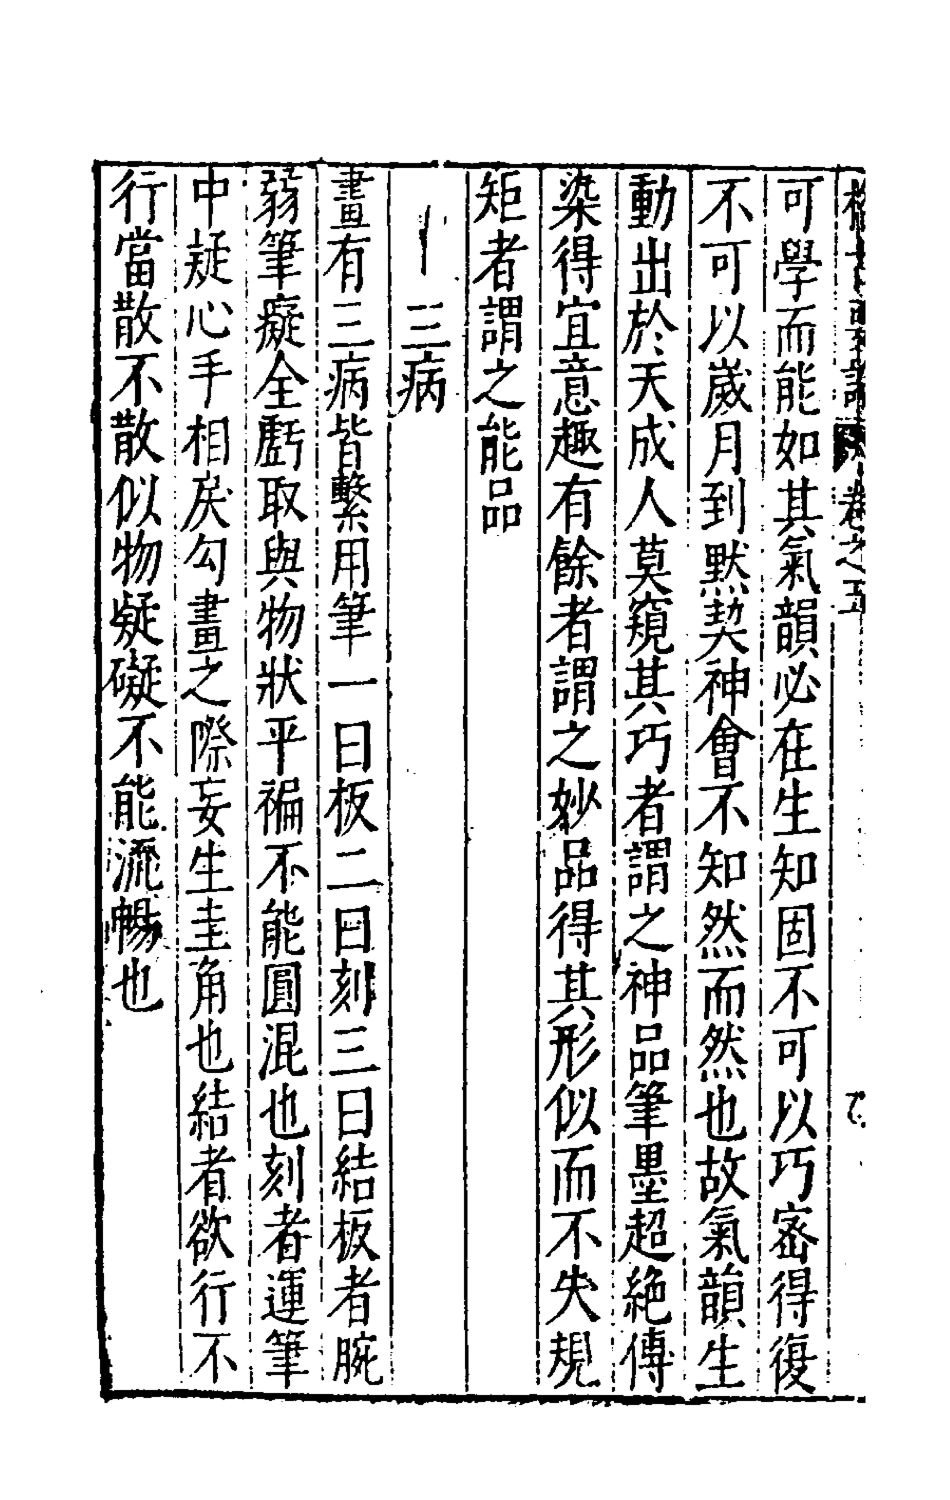 卷之五
可學而能如其氣韻必在生知固不可以巧密得復
不可以歲月到默契神會不知然而然也故氣韻生
動出於天成人莫窺其巧者謂之神品筆墨超絶傳
染得宜意趣有餘者謂之妙品得其形似而不失規
矩者謂之能品
三病
畫有三病皆繫用筆一曰板二曰刻三曰結板者腕
弱筆癡全虧取與物狀平褊不能圓混也刻者運筆
中疑心手相戾勾畫之際妄生圭角也結者欲行不
行當散不散似物凝礙不能流暢也